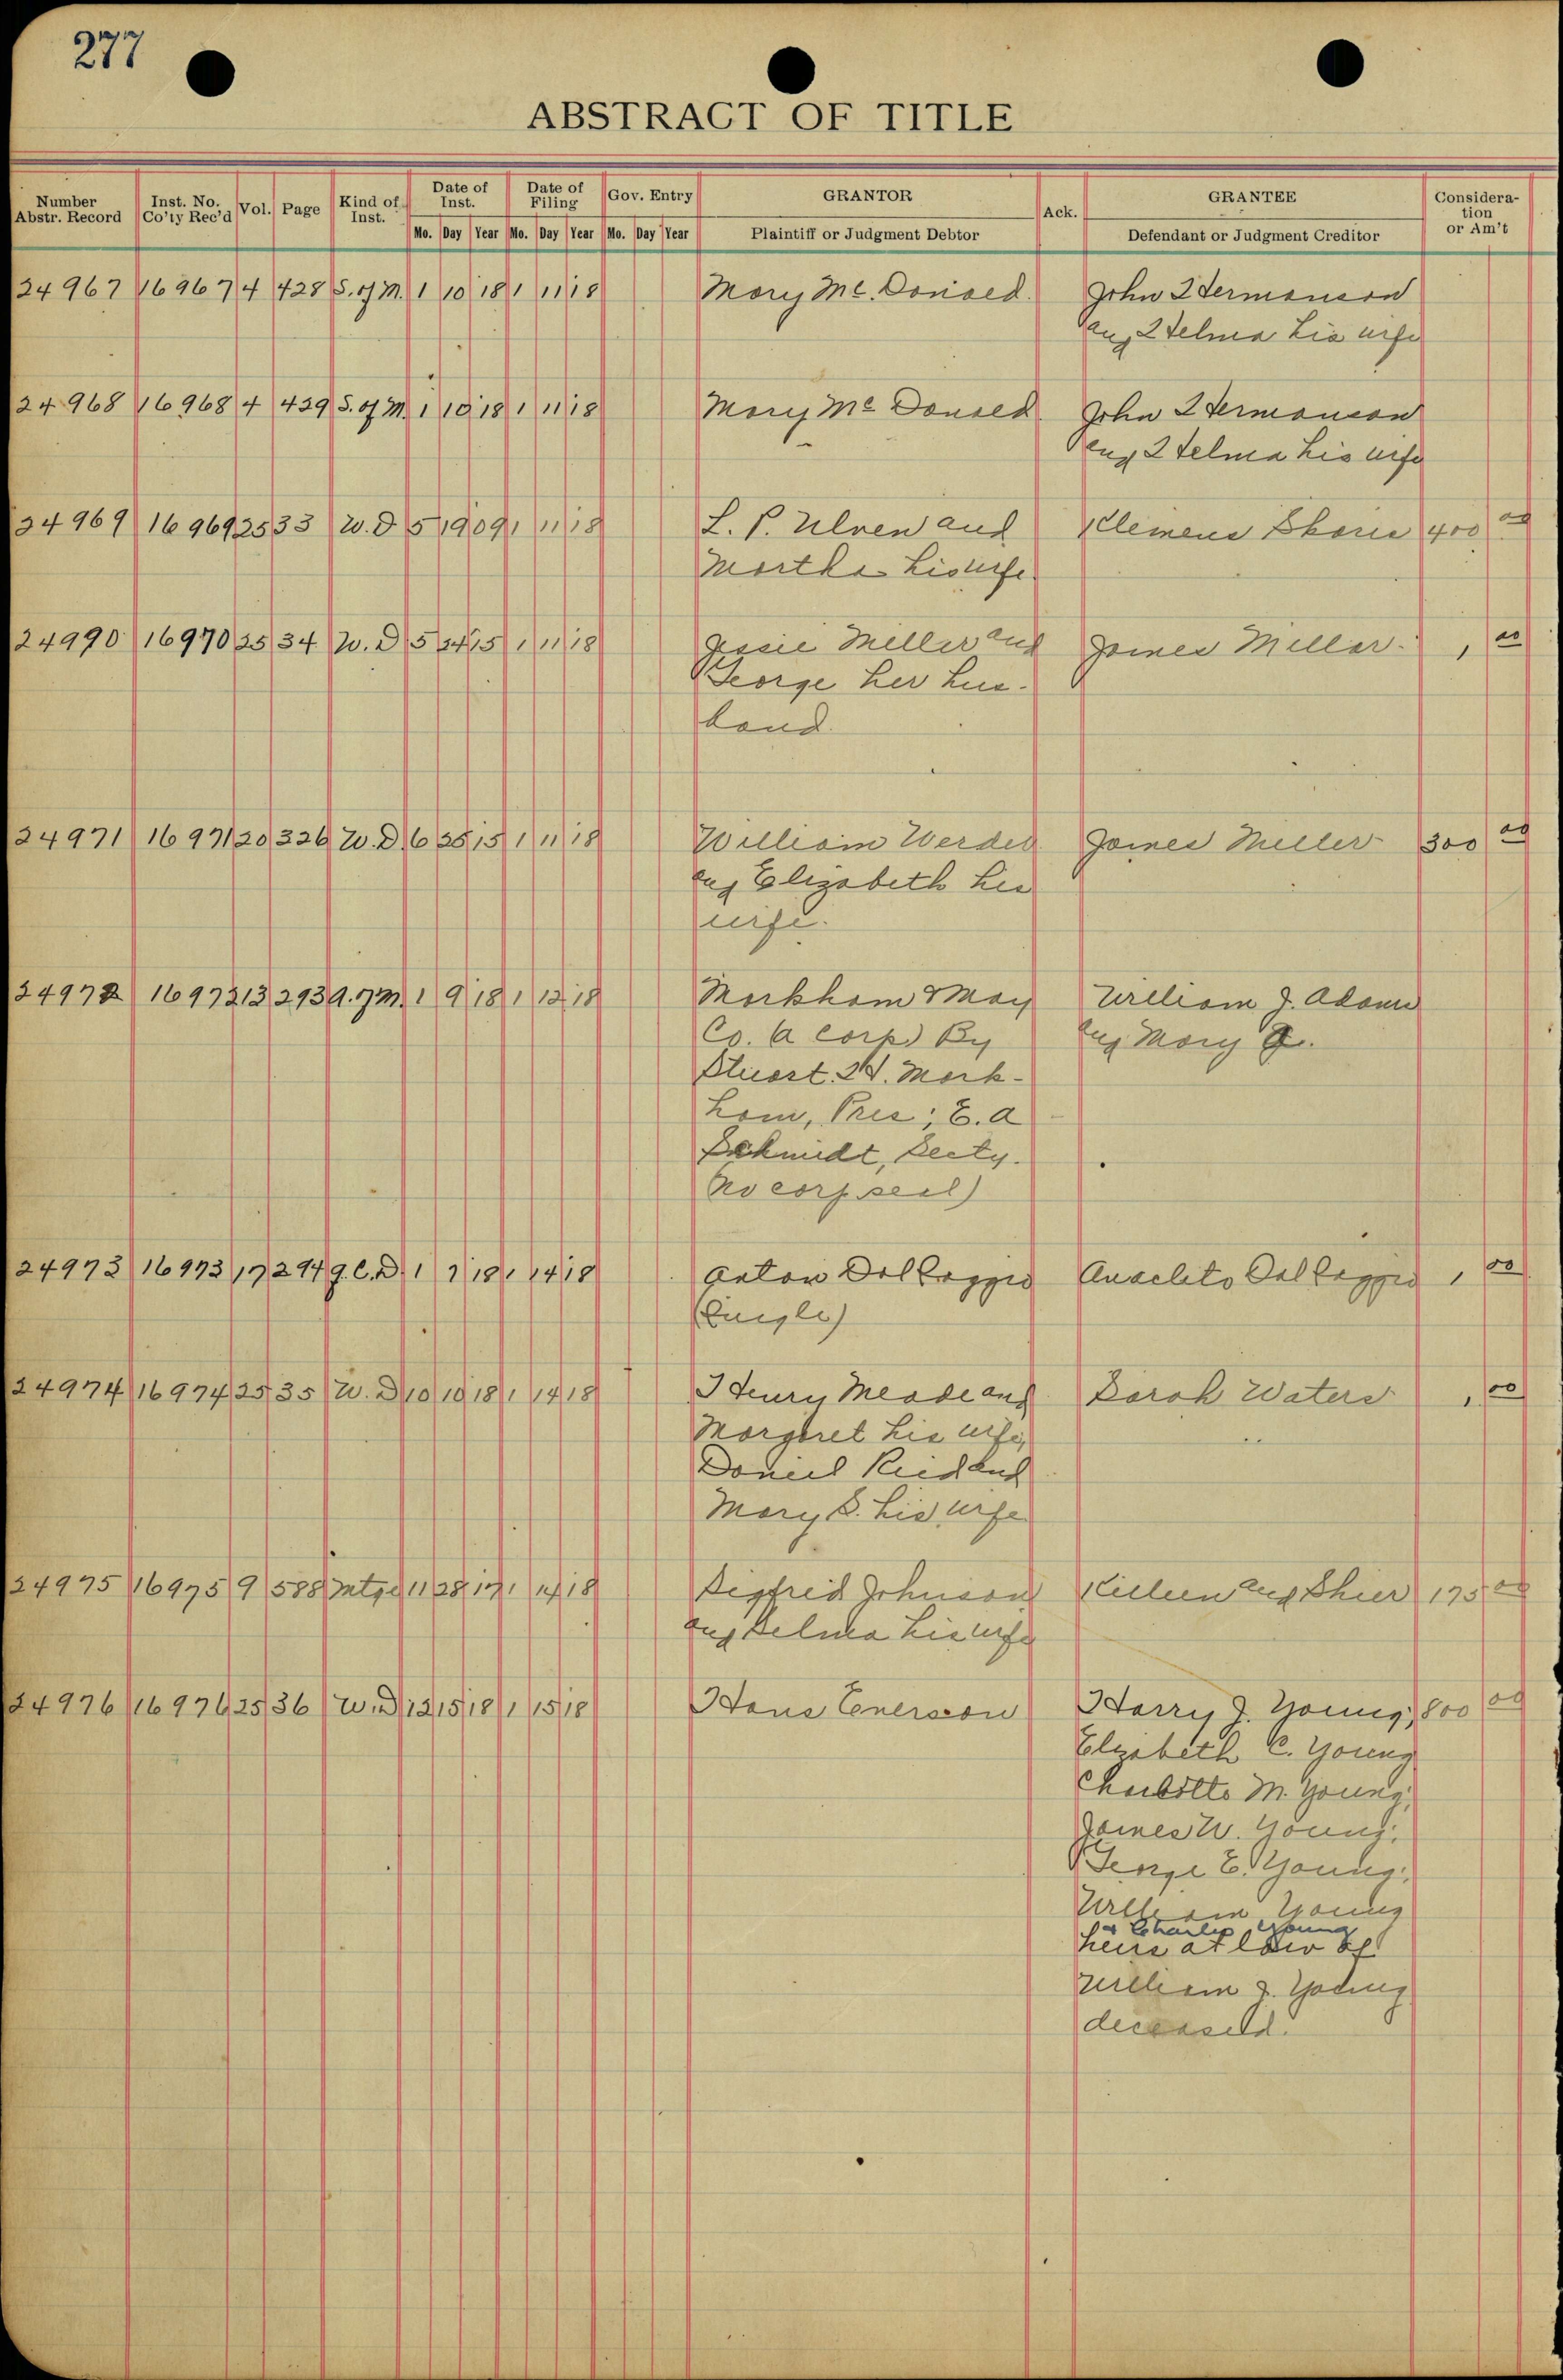 277
ABSTRACT OF TITLE
Number Abstr. Record Inst. No. Co'ty Rec'd Vol. Page Kind of Inst. Date of Inst. Date of Filing Gov. Entry GRANTOR Ack. GRANTEE Consideration or Am't
Mo. Day Year Mo. Day Year Mo. Day Year Plaintiff or Judgment Debtor Defendant or Judgment Creditor
24967 16967 4 428 S. of M. 1 10 18 1 11 18 Mary Mc. Donald. John Hermanson
and Helma his wife
24968 16968 4 429 S. of M. 1 10 18 1 11 18 Mary Mc Donald John Hermanson
and Helma his wife
24969 16969 25 33 W. D 5 19 09 1 11 18 L. P. Ulven and Clemens Skoric 400 00
Martha his wife
24990 16970 25 34 W. D 5 24 15 1 11 18 Jessie Miller and James Miller. 1 00
George her hus-
band.
24971 16971 20 326 W. D 6 25 15 1 11 18 William Werder James Miller 300 00
and Elizabeth his
wife.
24972 16972 13 293 A. of M. 1 9 18 1 12 18 Markham & May William J. Adams
Co. (a corp) By and Mary
Stuart. H. Mark-
ham, Pres; E. A
Schmidt, Secty.
No corp seal)
24973 16973 17 294 Q. C. D. 1 7 18 1 14 18 Anton Dal Poggio Anacleto Dal Poggio 1 00
(Single)
24974 16974 25 35 W. D 10 10 18 1 14 18 Henry Meade and Sarah Waters 1 00
Margaret his wife,
Daniel Ried and
Mary S. his wife
24975 16975 9 588 Mtge 11 28 17 1 14 18 Sigfrid Johnson Killeen and Shier 175 00
and Selma his wife
24976 16976 25 36 W. D 12 15 18 1 15 18 Hans Enerson Harry J. Young, 800 00
Elizabeth C. Young
Charlotte M. Young,
James W. Young,
George E. Young,
William Young
& Charles Young
heirs at law of
William J. Young
deceased.